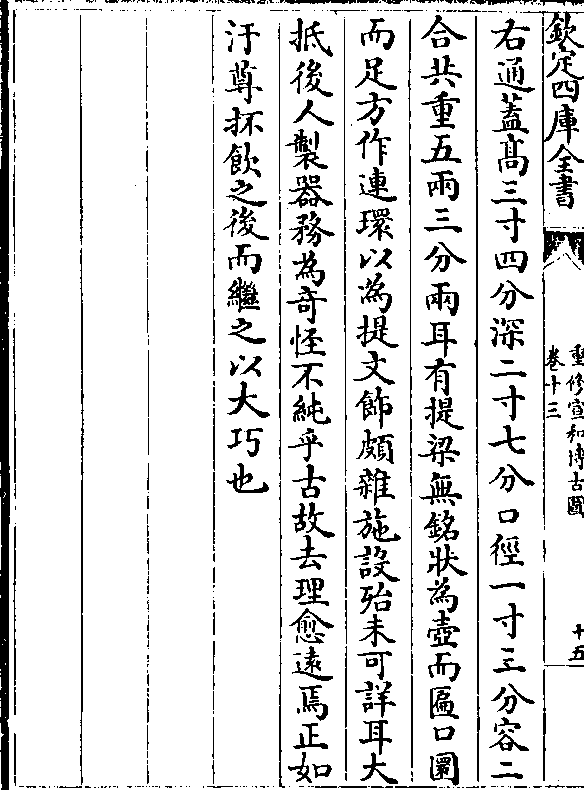 欽定四庫全書
重修宣和博古圖
卷十三
十五
右通蓋髙三寸四分深二寸七分口徑一寸三分容二
合共重五兩三分兩耳有提梁無銘狀為壺而匾口圜
而足方作連環以為提文飾頗雜施設殆未可詳耳大
抵後人製器務為奇怪不純乎古故去理愈逺焉正如
汙尊抔飲之後而繼之以大巧也